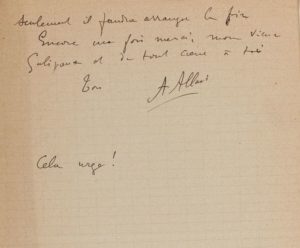 Seulement il faudra arranger la fin
Encore une fois merci, mon vieux
Galipaux et de tout cœur à toi
Ton A Allais
Cela urge!